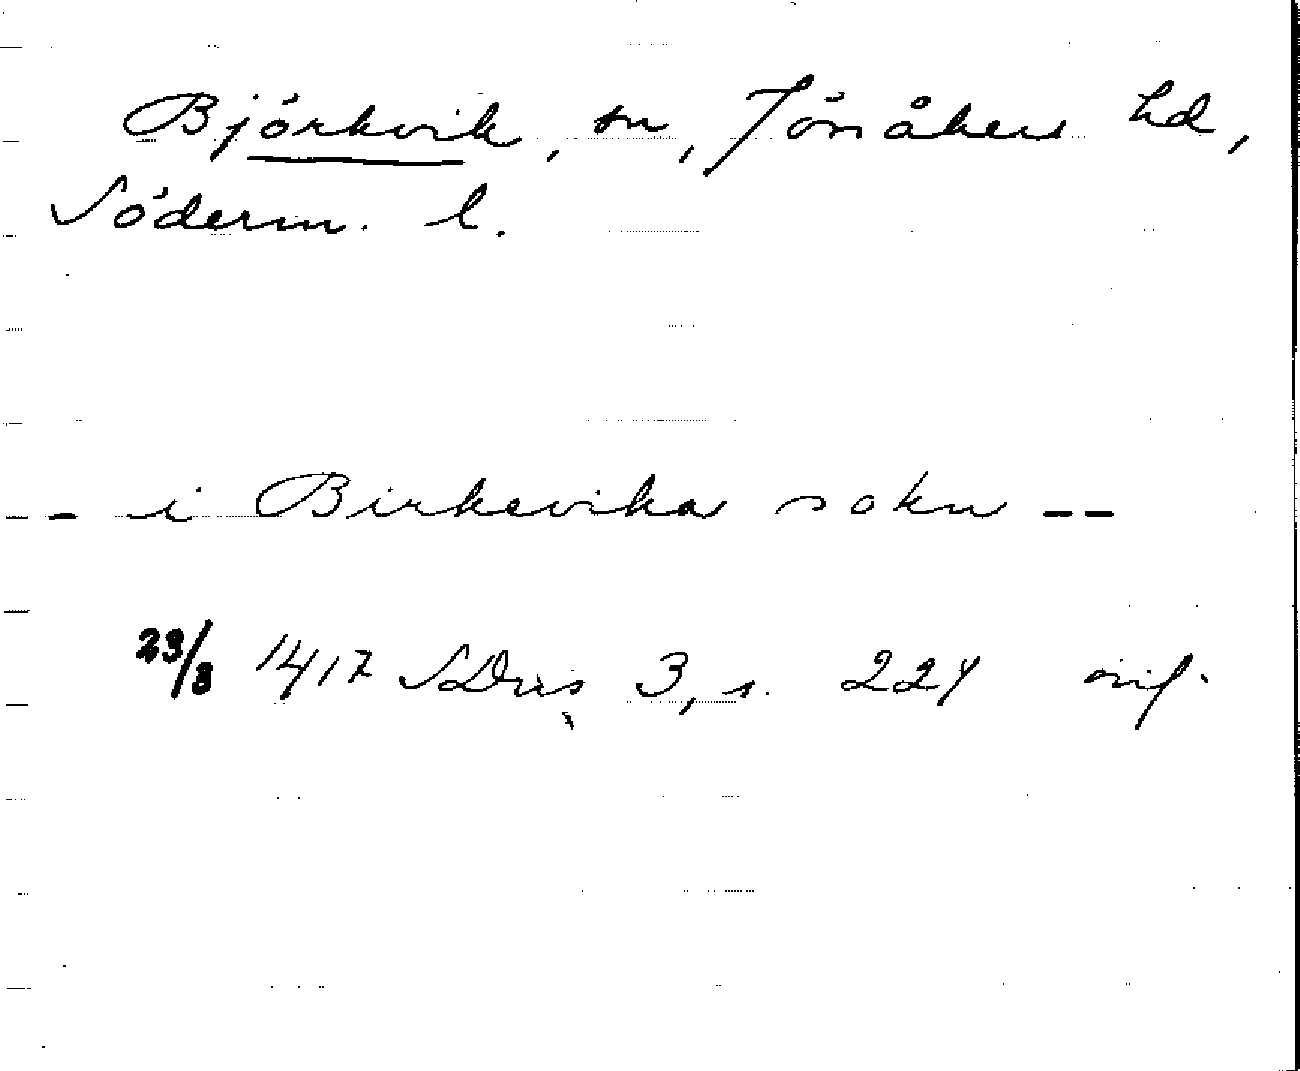 Björkvik, sn, Jönåkers hd,
Söderm. l.
- - i Birkevika sokn - -
23/3 1417 SDns 3, s. 224 orif.